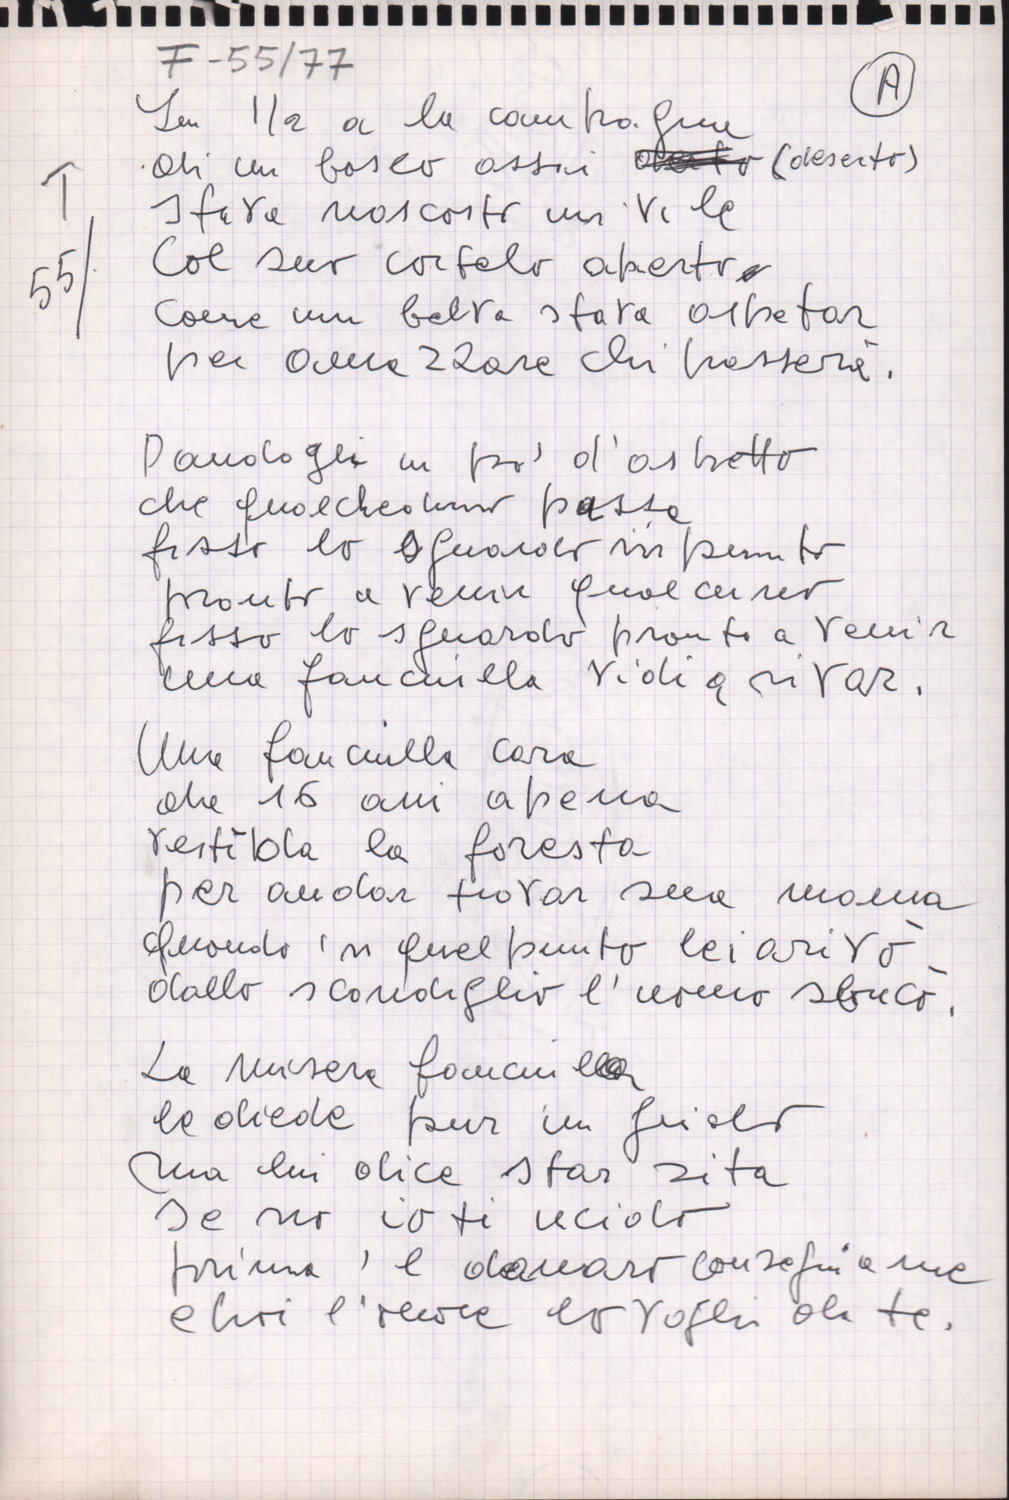 F-55/77
A
In 1/2 a la campagna
di un bosco assai (deserto)
T
stava nascosto un vile
55/
Col suo cortelo aperto
come una belva stava aspetar
per amazzare chi passerà.
Dandogli un po' d'aspetto
che qualcheduno passa
fisso lo sguardo in punto
pronto a venir qualcuno
fisso lo sguardo pronto a venir
una fanciulla vidi arivar.
Una fanciulla cara
che 16 ani apena
per andar trovar sua mama
quando in quel punto lei arivò
dallo scondiglio l'uomo sbucò.
La misera fanciulla
le diede pur un grido
ma lui dice star zita
se no io ti ucido
prima il danaro consegni a me
e poi l'onore lo vogli da te.